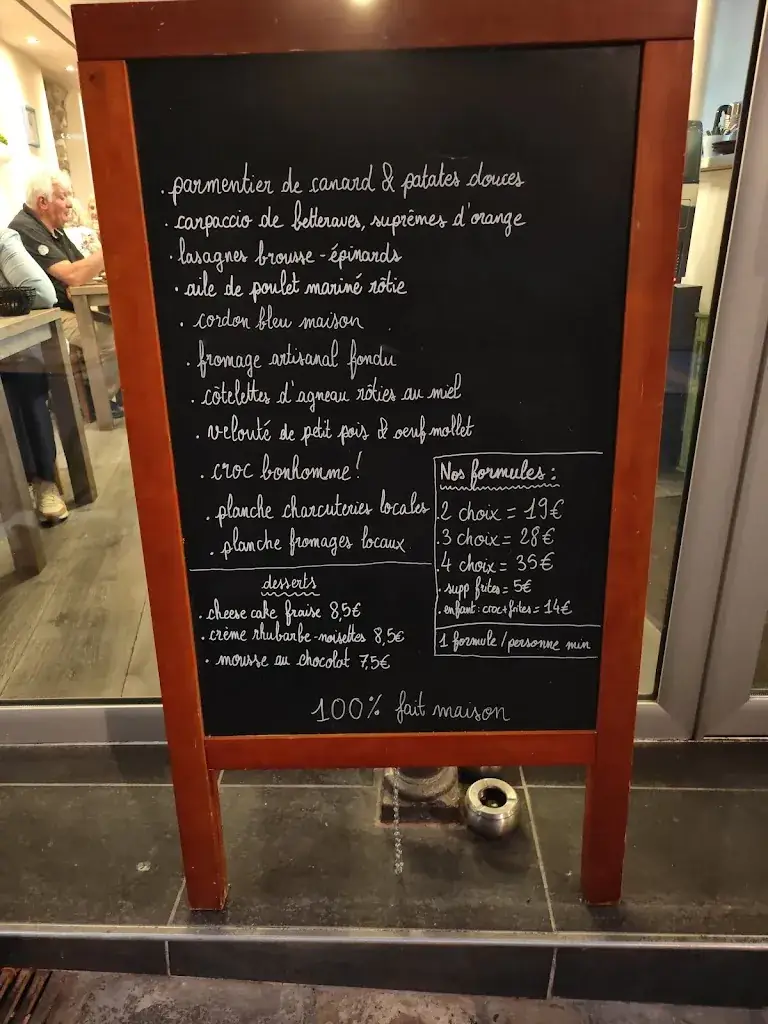 . parmentier de canard & patates douces
. carpaccio de betteraves, suprêmes d'orange
. lasagnes brousse - épinards
. aile de poulet mariné rôtie
. cordon bleu maison
. fromage artisanal fondu
. côtelettes d'agneau rôties au miel
. velouté de petit pois & oeuf mollet
. croc bonhomme !
. planche charcuteries locales
. planche fromages locaux
Nos formules :
. 2 choix = 19€
. 3 choix = 28€
. 4 choix = 35€
. supp frites = 5€
. enfant : croc+frites = 14€
1 formule / personne min
desserts
. cheese cake fraise 8,5€
. crème rhubarbe - noisettes 8,5€
. mousse au chocolat 7,5€
100% fait maison